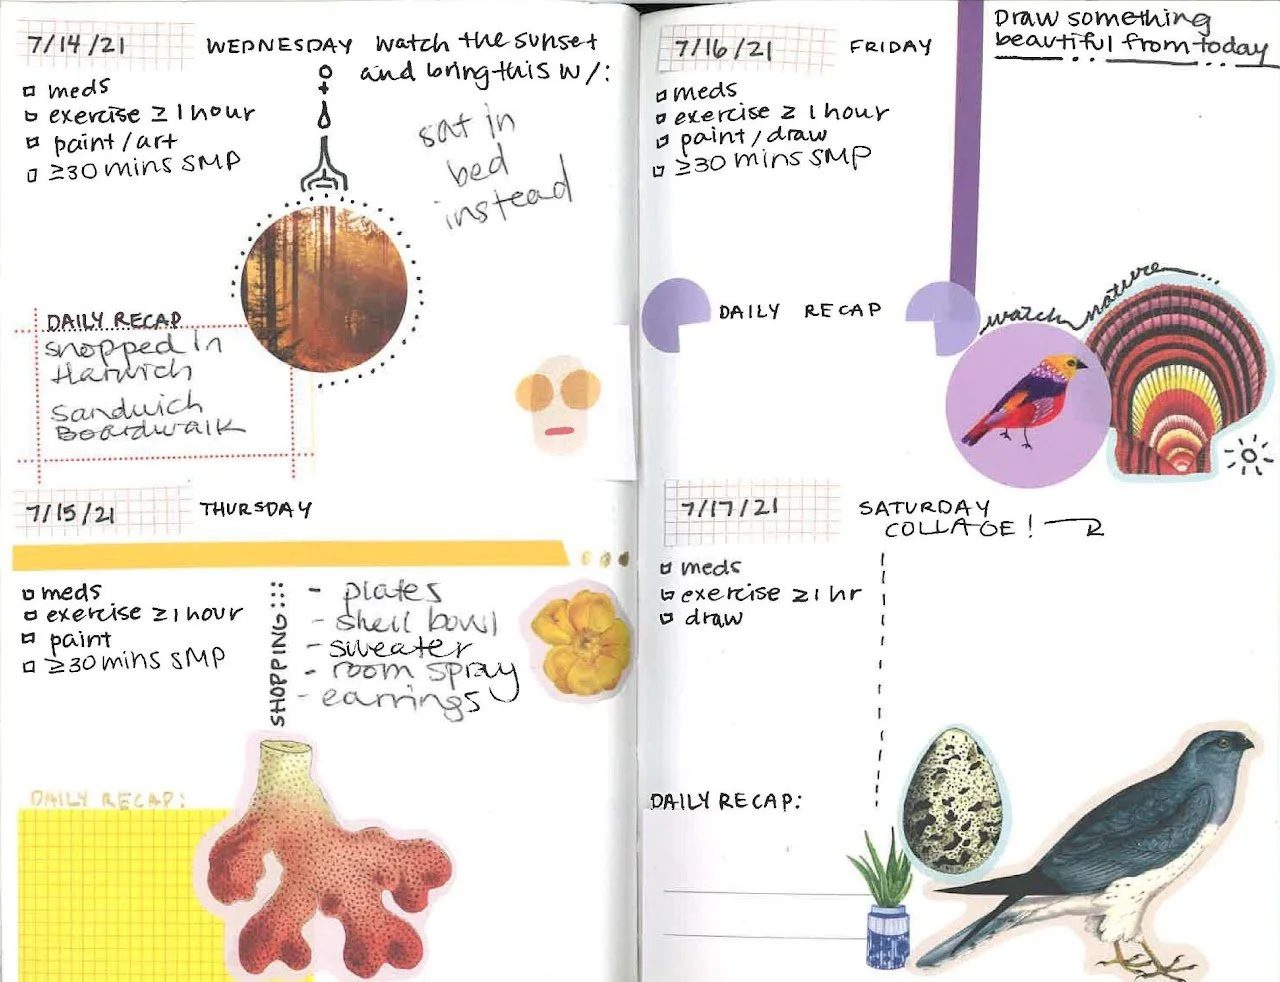 7/14/21 WEDNESDAY
watch the sunset
and bring this w/:
meds
exercise ≥ 1 hour
paint/art
≥30 mins SMP
sat in
bed
instead
DAILY RECAP
shopped in
Harwich
Sandwich
Boardwalk
7/15/21 THURSDAY
meds
exercise ≥ 1 hour
paint
≥30 mins SMP
SHOPPING:::
- plates
- shell bowl
- sweater
- room spray
- earrings
DAILY RECAP:
7/16/21 FRIDAY
Draw something
beautiful from today
meds
exercise ≥ 1 hour
paint/draw
≥30 mins SMP
DAILY RECAP
watch nature...
7/17/21 SATURDAY
COLLAGE!
meds
exercise ≥ 1 hr
draw
DAILY RECAP: